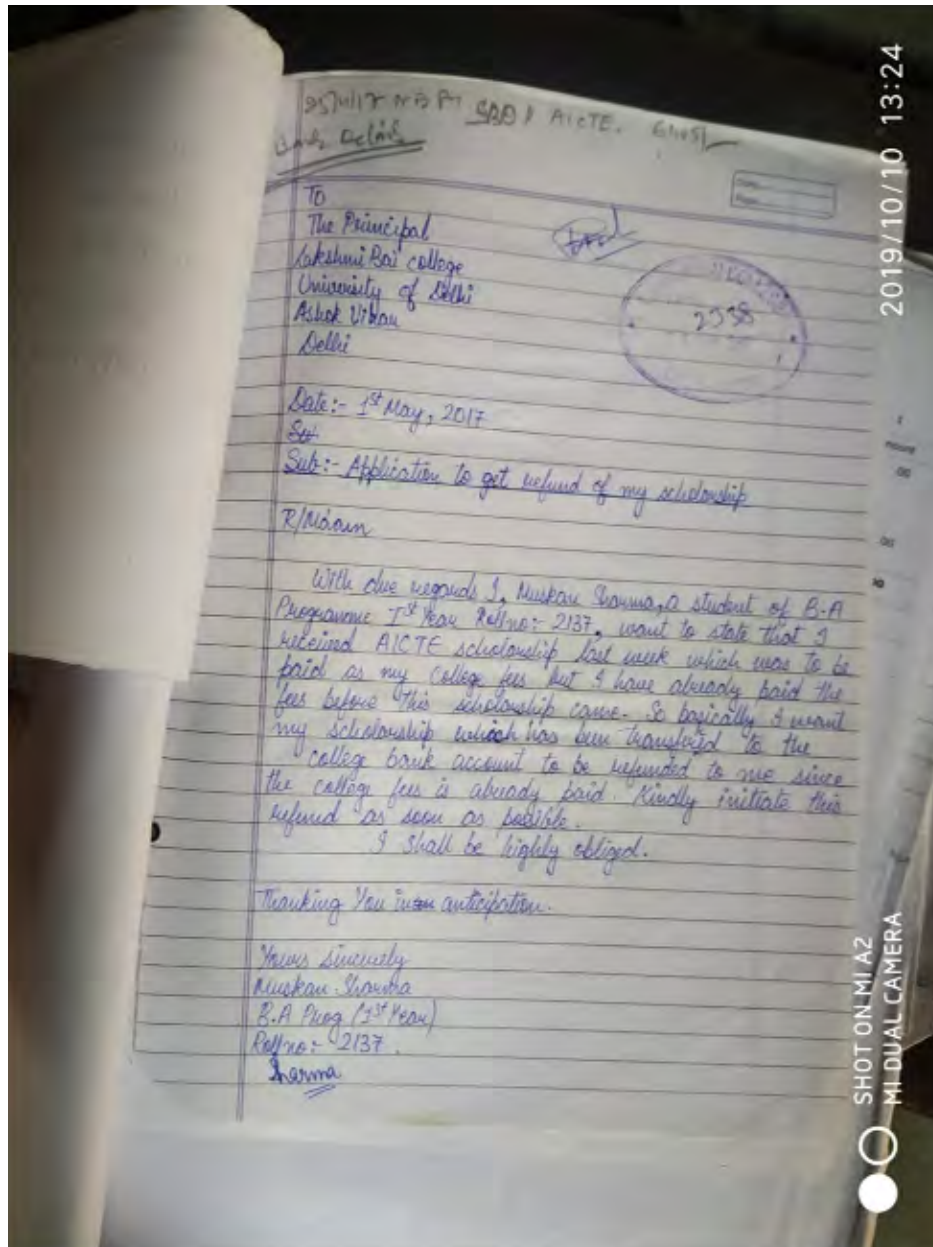 AICTE.
To
The Principal
Lakshmi Bai college
University of Delhi
Ashok Vihar
Delhi
2338
Date:- 1st May, 2017
Sub:- Application to get refund of my scholarship
R/Máam
With due regards I, Muskan Sharma, a student of B.A
Programme Ist Year Roll no:- 2137, want to state that I
received AICTE scholarship last week which was to be
paid as my college fees but I have already paid the
fees before this scholarship came. So basically I want
my scholarship which has been transfered to the
college bank account to be refunded to me since
the college fees is already paid. Kindly initiate this
refund as soon as possible.
I shall be highly obliged.
Thanking You in anticipation.
Yours sincerely
Muskan Sharma
B.A Prog (1st Year)
Roll no:- 2137.
Sharma
2019/10/10 13:24
SHOT ON MI A2
MI DUAL CAMERA